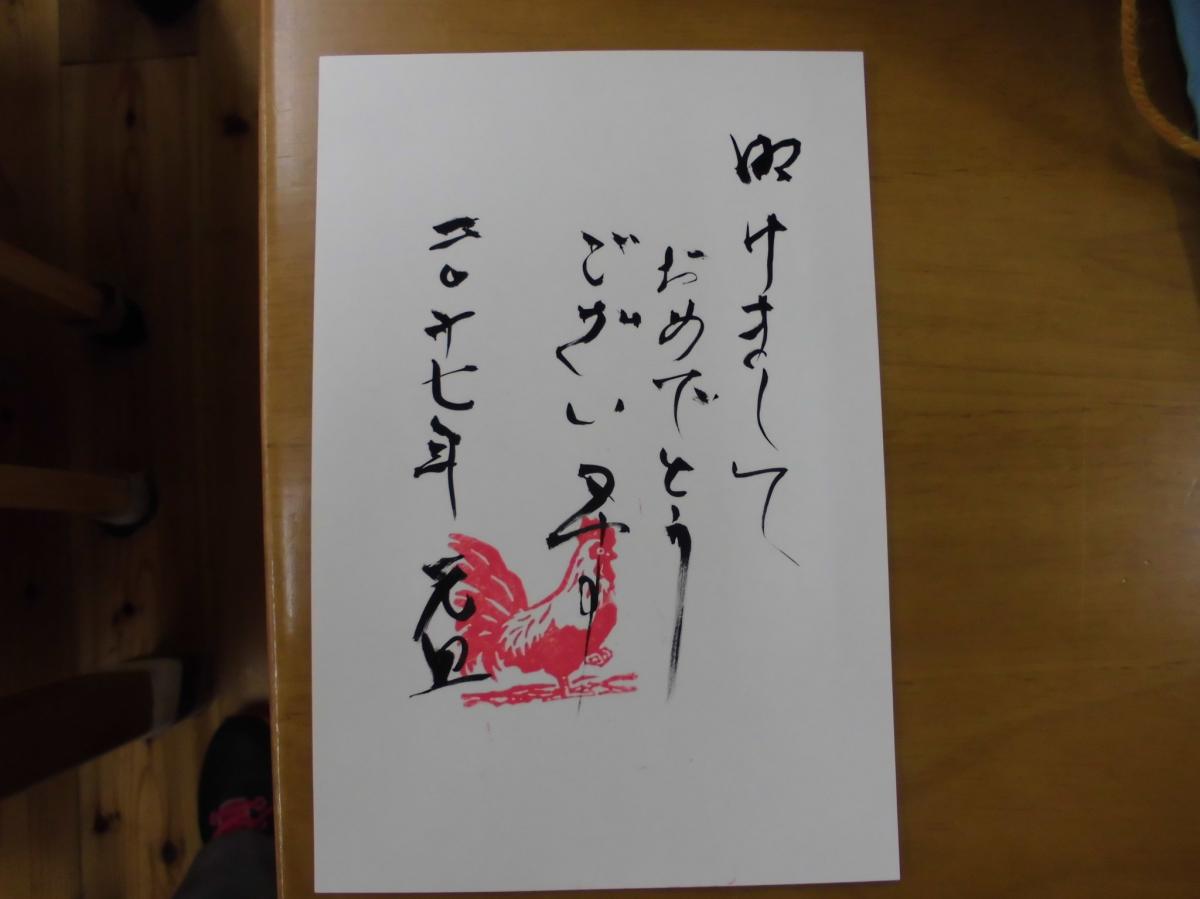 明けまして
おめでとう
ございます
二〇十七年 元旦